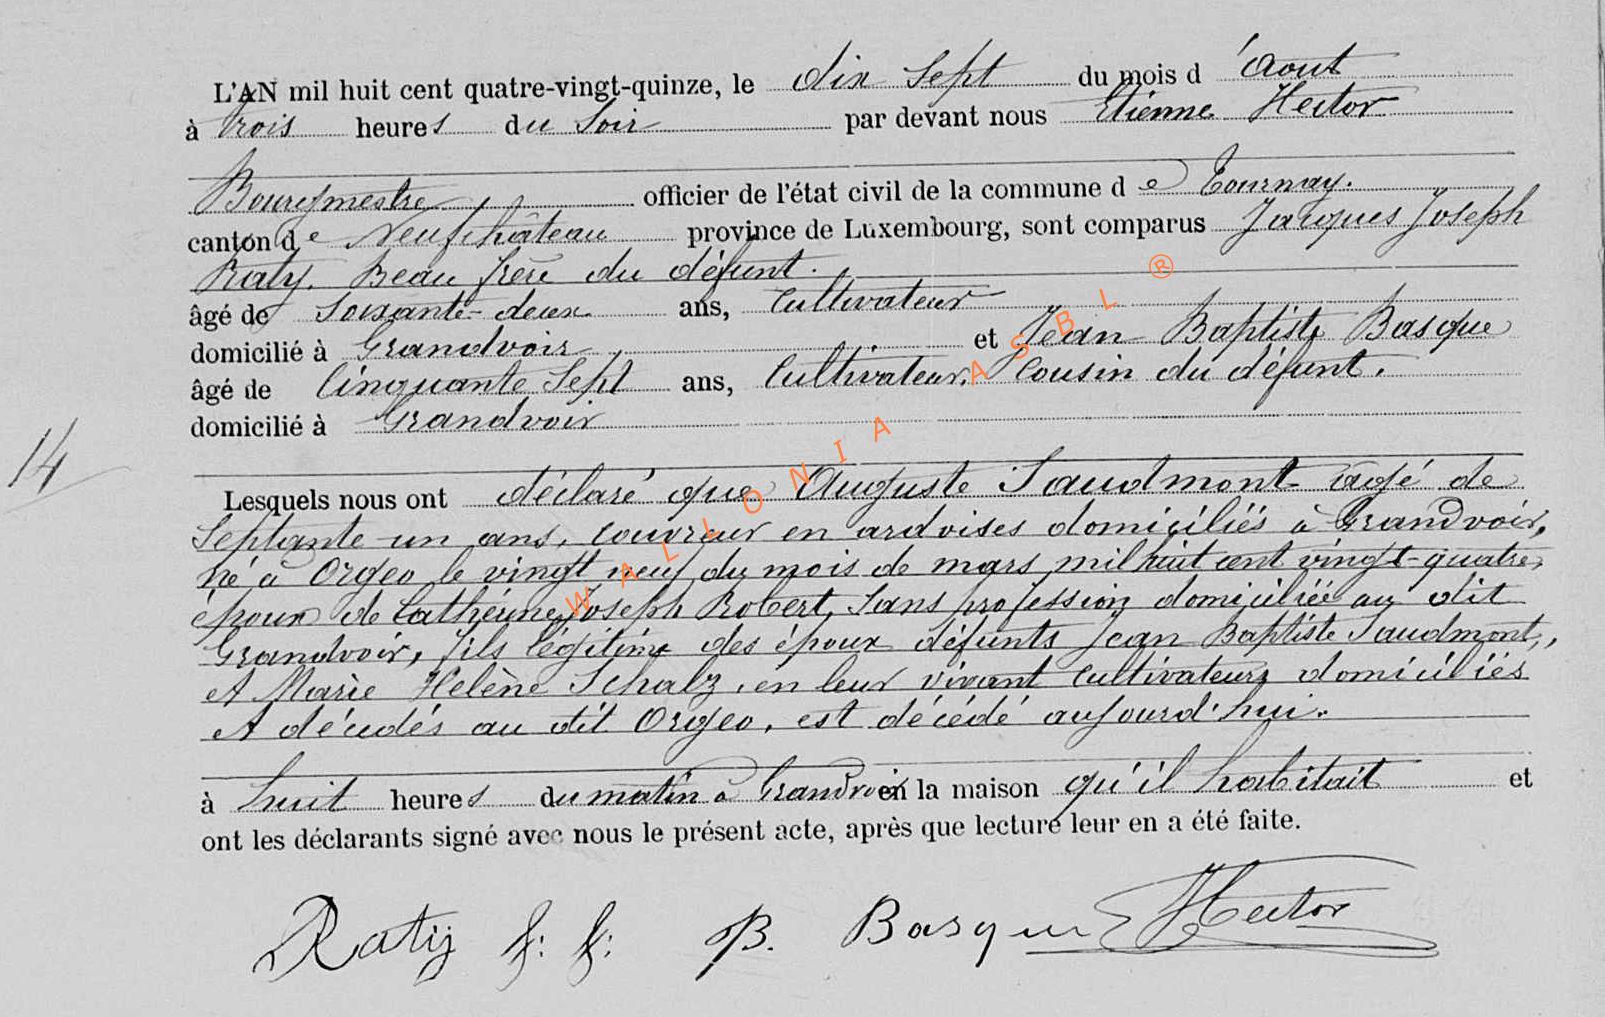 L'AN mil huit cent quatre-vingt-quinze, le dix Sept du mois d'Aout
à trois heures du Soir par devant nous Etienne Hector
Bourgmestre officier de l'état civil de la commune de Tournay.
canton de Neufchâteau province de Luxembourg, sont comparus Jacques Joseph
Raty. Beau frère du défunt.
âgé de Soixante-deux ans, Cultivateur
domicilié à Grandvoir et Jean Baptiste Basque
âgé de Cinquante Sept ans, Cultivateur. Cousin du défunt.
domicilié à Grandvoir
14
Lesquels nous ont déclaré que Auguste Saudmont agé de
Septante un ans, couvreur en ardoises domiciliés à Grandvoir,
né à Orgeo le vingt neuf du mois de mars mil huit cent vingt-quatre,
époux de Cathérine Joseph Robert, Sans profession domiciliée au dit
Grandvoir, fils légitime des époux défunts Jean Baptiste Saudmont,
et Marie Helène Schalz, en leur vivant Cultivateurs domiciliés
et décédés au dit Orgeo, est décédé aujourd'hui.
à huit heures du matin à Grandvoir en la maison qu'il habitait et
ont les déclarants signé avec nous le présent acte, après que lecture leur en a été faite.
Raty J: J: B. Basque Hector
WALLONIA ASBL ®